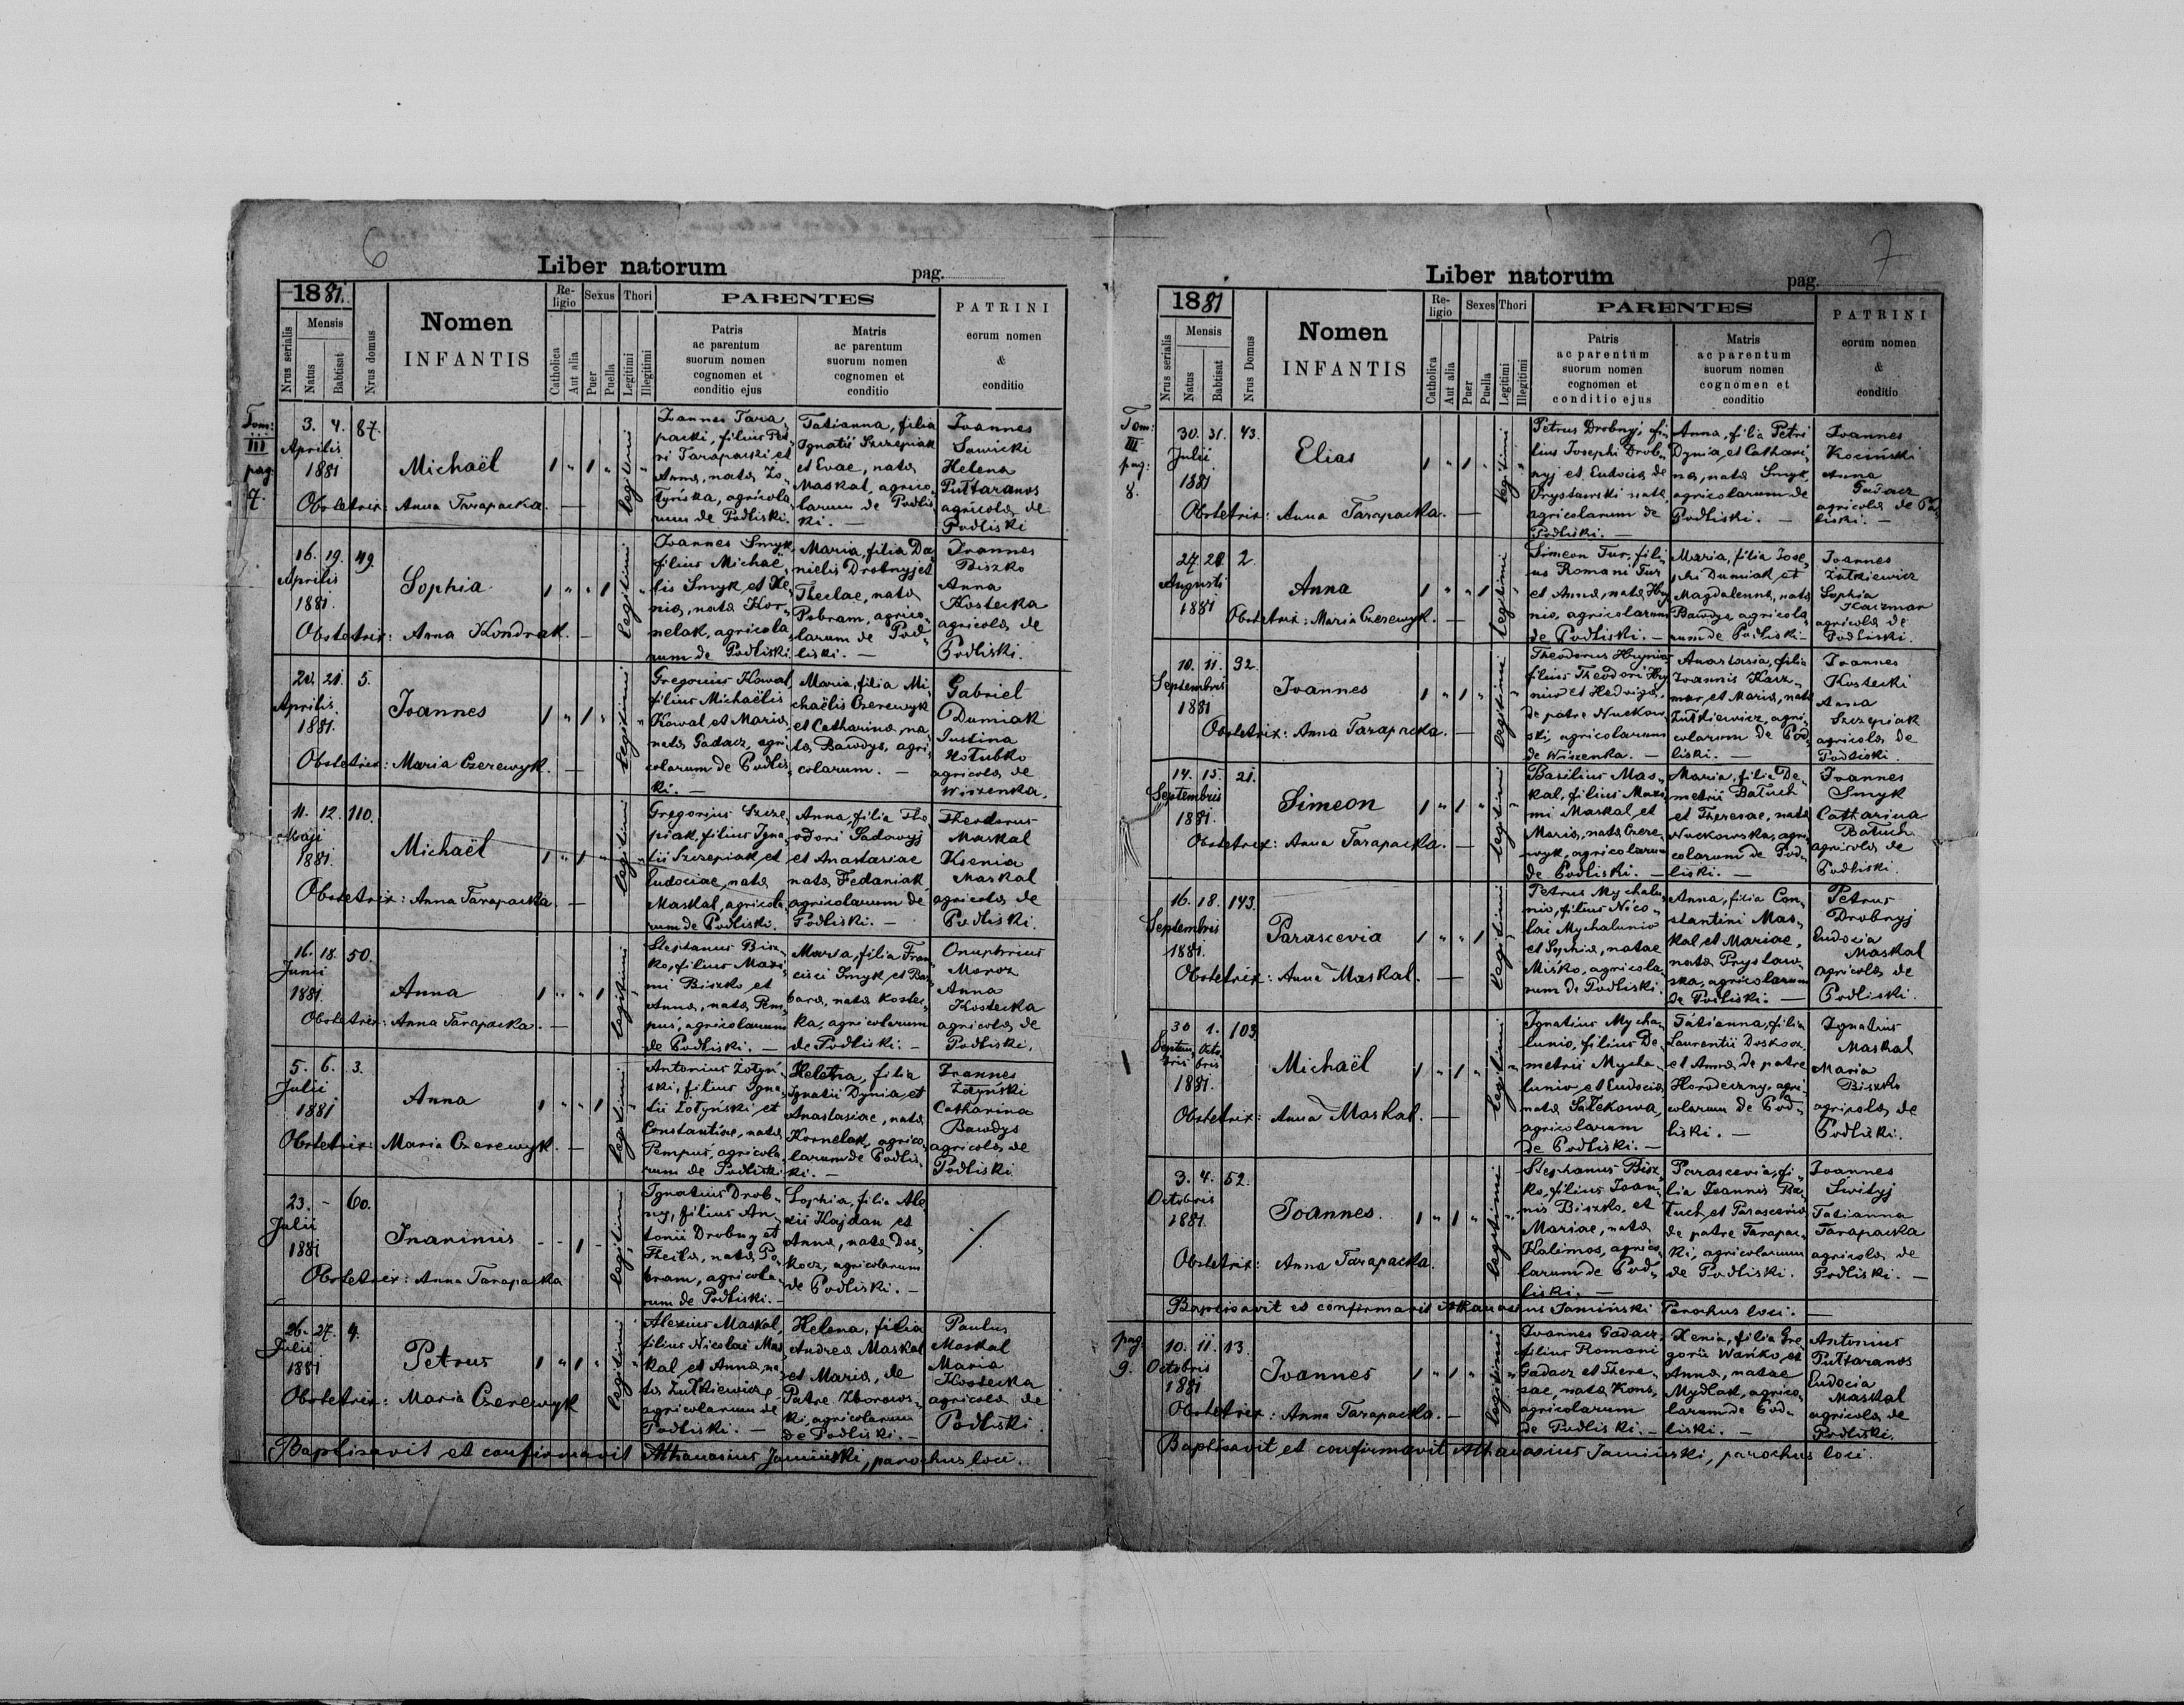 6
Liber natorum pag.
1881.
Nrus serialis
Mensis
Natus
Babtisat
Nrus domus
Nomen
INFANTIS
Religio
Catholica
Aut alia
Sexus
Puer
Puella
Thori
Legitimi
Illegitimi
PARENTES
Patris
ac parentum
suorum nomen
cognomen et
conditio ejus
Matris
ac parentum
suorum nomen
cognomen et
conditio
PATRINI
eorum nomen
&
conditio
Tom:
III
pag
7.
3. 4. 87.
Aprilis
1881
Michaël
legitimi
Obstetrix: Anna Tarapacka.
Ioannes Tara„
packi, filius Pet„
ri Tarapacki et
Anna, nata Zo„
tyńska, agricola„
rum de Podliski.
Tatianna, filia
Ignatii Szczepiak
et Evae, nata
Maskal, agrico„
larum de Podlis„
ki. —
Ioannes
Sawicki
Helena
Puttaranos
agricola de
Podliski
16. 19. 49.
Aprilis
1881.
Sophia
legitimi
Obstetrix: Anna Kondrak.
Ioannes Smyk,
filius Michae„
lis Smyk et Xe„
nia, nata Kor„
nelak, agricola„
rum de Podliski
Maria, filia Da„
nielis Drobnyj et
Theclae, nata
Pobram, agrico„
larum de Pod„
liski. —
Ioannes
Biszko
Anna
Kostecka
agricola de
Podliski.
20. 21. 5.
Aprilis.
1881.
Ioannes
legitimi
Obstetrix: Maria Czerewyk.
Gregorius Kowal,
filius Michaëlis
Kowal et Maria,
nata Gadacz, agri„
colarum de Podlis„
ki. —
Maria, filia Mi„
chaëlis Czerewyk
et Catharina, na„
ta Bawdys, agri„
colarum. —
Gabriel
Dumiak
Justina
Hołubko
agricola de
Wiszenka.
11. 12. 110.
Maji
1881.
Michaël
legitimi
Obstetrix: Anna Tarapacka.
Gregorius Szcze„
piak, filius Igna„
tii Szczepiak et
Eudociae, nata
Maskal, agricola„
rum de Podliski.
Anna, filia The„
odori Sadowyj
et Anastasiae
nata Fedaniak,
agricolarum de
Podliski. —
Theodorus
Maskal
Ksenia
Maskal
agricola de
Podliski.
16. 18. 50.
Junii
1881.
Anna
legitimi
Obstetrix: Anna Tarapacka.
Stephanus Bisz„
ko, filius Maxi„
mi Biszko et
Anna, nata Pem„
pus, agricolarum
de Podliski. —
Maria, filia Fran„
cisci Smyk et Bar„
bara, nata Kostec„
ka, agricolarum
de Podliski. —
Onuphrius
Moroz
Anna
Kostecka
agricola de
Podliski.
5. 6. 3.
Julii
1881
Anna
legitimi
Obstetrix: Maria Czerewyk.
Antonius Żołyń„
ski, filius Igna„
tii Żołyński et
Constantiae, nata
Pempus, agricola„
rum de Podliski
Helena, filia
Ignatii Dynia et
Anastasiae, nata
Kornelak, agrico„
larum de Podlis„
ki. —
Ioannes
Żołyński
Catharina
Bawdys
agricola de
Podliski
23. - 60.
Julii
1881
Inanimis
legitimi
Obstetrix: Anna Tarapacka
Ignatius Drob„
ny, filius An„
tonii Drobny et
Thecla, nata Po„
bram, agricola„
rum de Podliski. —
Sophia, filia Ale„
xii Kajdan et
Anna, nata Dos„
kocz, agricolarum
de Podliski. —
26. 27. 4.
Julii
1881
Petrus
legitimi
Obstetrix: Maria Czerewyk
Alexius Maskal,
filius Nicolai Mas„
kal et Anna, na„
ta Żułkiewicz,
agricolarum de
Podliski. —
Helena, filia
Andrea Maskal
et Maria, de
Patre Zborows„
ki, agricolarum
de Podliski. —
Paulus
Maskal
Maria
Kostecka
agricola de
Podliski.
Baptisavit et confirmavit Athanasius Jamiński, parochus loci.
7
Liber natorum pag.
1881
Nrus serialis
Mensis
Natus
Babtisat
Nrus Domus
Nomen
INFANTIS
Religio
Catholica
Aut alia
Sexes
Puer
Puella
Thori
Legitimi
Illegitimi
PARENTES
Patris
ac parentum
suorum nomen
cognomen et
conditio ejus
Matris
ac parentum
suorum nomen
cognomen et
conditio
PATRINI
eorum nomen
&
conditio
Tom:
III
pag:
8.
30. 31. 43.
Julii
1881
Elias
legitimi
Obstetrix: Anna Tarapacka.
Petrus Drobnyj fi„
lius Josephi Drob„
nyj et Eudocia de
Prystawski nata,
agricolarum de
Podliski. —
Anna, filia Petri
Dynia, et Cathari„
na, nata Smyk,
agricolarum de
Podliski. —
Ioannes
Kociński
Anna
Gadacz
agricola de Pod„
liski. —
27. 28. 2.
Augusti
1881
Anna
legitimi
Obstetrix: Maria Czerewyk.
Simeon Tur, fili„
us Romani Tur
et Anna, nata Hry„
nio, agricolarum
de Podliski. —
Maria, filia Jose„
phi Dumiak et
Magdalenna, nata
Bawdys agricola„
rum de Podliski —
Ioannes
Żułkiewicz
Sophia
Kaczmar
agricola de
Podliski.
10. 11. 32.
Septembris
1881
Ioannes
legitimi
Obstetrix: Anna Tarapacka.
Theodorus Hrynio
filius Theodori Hry„
nio et Hedviga,
de patre Nuckow„
ski, agricolarum
de Wiszenka. —
Anastasia, filia
Ioannis Kacz„
mar, et Maria, nata
Żułkiewicz, agri„
colarum de Pod„
liski. —
Ioannes
Kostecki
Anna
Szczepiak
agricola de
Podliski.
14. 15. 21.
Septembris
1881.
Simeon
legitimi
Obstetrix: Anna Tarapacka.
Basilius Mas„
kal, filius Maxi„
mi Maskal et
Maria, nata Czere„
wyk, agricolarum
de Podliski. —
Maria, filia De„
metrii Batuch
et Theresae, nata
Nuckowska, agri„
colarum de Pod„
liski. —
Ioannes
Smyk
Catharina
Batuch
agricola de
Podliski.
16. 18. 143.
Septembris
1881.
Parascevia
legitimi
Obstetrix: Anna Maskal.
Petrus Mychalu„
nio, filius Nico„
lai Mychalunio
et Sophia, natae
Miśko, agricola„
rum de Podliski.
Anna, filia Con„
stantini Mas„
kal et Mariae,
nata Prystaw„
ska, agricolarum
de Podliski. —
Petrus
Drobnyj
Eudocia
Maskal
agricola de
Podliski.
30 1. 103.
Septem„ Octo„
bris bris
1881.
Michaël
legitimi
Obstetrix: Anna Maskal.
Ignatius Mycha„
lunio, filius De„
metrii Mycha„
lunio et Eudocia,
nata Salekowa,
agricolarum
de Podliski. —
Tatianna, filia
Laurentii Doskocz
et Anna, de patre
Horodeczny, agri„
colarum de Pod„
liski. —
Ignatius
Maskal
Maria
Biszko
agricola de
Podliski.
3. 4. 52.
Octobris
1881.
Ioannes.
legitimi
Obstetrix: Anna Tarapacka.
Stephanus Bisz„
ko, filius Ioan„
nis Biszko, et
Mariae, nata
Kalimos, agrico„
larum de Pod„
liski. —
Parascevia, fi„
lia Ioannis Ba„
tuch et Parascevia
de patre Tarapac„
ki, agricolarum
de Podliski.
Ioannes
Śwityj
Tatianna
Tarapacka
agricola de
Podliski. —
Baptisavit et confirmavit Athanasius Jamiński Parochus loci. —
pag:
9.
10. 11. 13.
Octobris
1881
Ioannes
legitimi
Obstetrix: Anna Tarapacka.
Ioannes Gadacz,
filius Romani
Gadacz et There„
sae, nata Kons,
agricolarum
de Podliski. —
Xenia, filia Gre„
gorii Wańko, et
Anna, natae
Mydlak, agrico„
larum de Pod„
liski. —
Antonius
Puttaranos
Eudocia
Maskal
agricola de
Podliski.
Baptisavit et confirmavit Athanasius Jamiński, parochus loci.